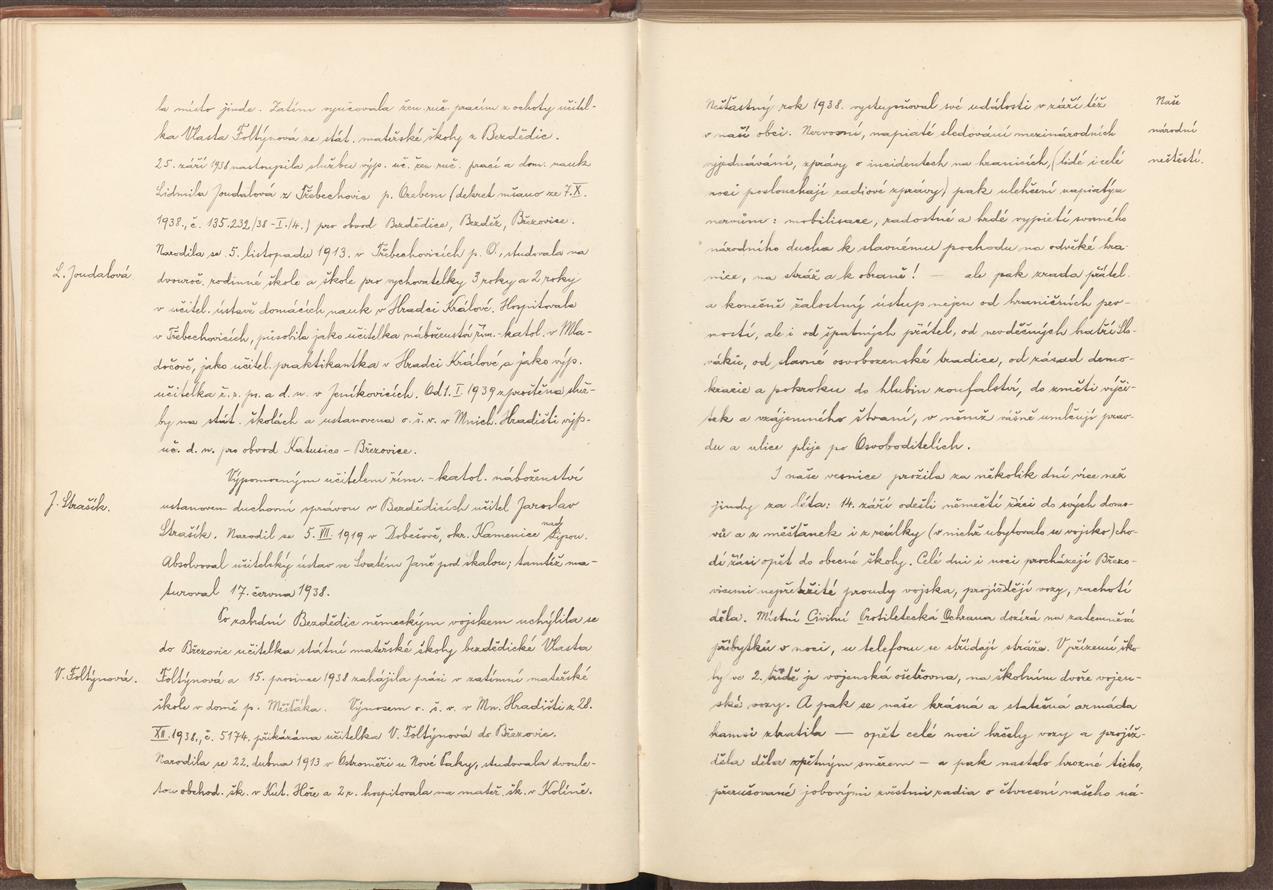 la místo jinde. Zatím vyučovala žen. ruč. pracím z ochoty učitel-
ka Vlasta Foltýnová ze stát. mateřské školy z Bezdědic.
25. září 1938 nastoupila službu výp. uč. žen. ruč. prací a dom. nauk
Lidmila Joudalová z Třebechovic p. Orebem (dekret mšano ze 7.X.
1938., č. 135.232/38-I./4.) pro obvod Bezdědice, Bezděz, Březovice.
Narodila se 5. listopadu 1913. v Třebechovicích p. O., studovala na
L. Joudalová
dvouroč. rodinné škole a škole pro vychovatelky 3 roky a 2 roky
v učitel. ústavě domácích nauk v Hradci Králové. Hospitovala
v Třebechovicích, působila jako učitelka náboženství řím.-katol. v Mla-
dočově, jako učitel. praktikantka v Hradci Králové, a jako výp.
učitelka ž. r. p. a d. n. v Jeníkovicích. Od 1. I. 1939 zproštěna služ-
by na stát. školách a ustanovena o. š. v. v Mnich. Hradišti výp.
uč. d. n. pro obvod Katusice - Březovice.
Výpomocným učitelem řím.-katol. náboženství
J. Strašík.
ustanoven duchovní správou v Bezdědicích učitel Jaroslav
Strašík. Narodil se 5. VII. 1919 v Dobešově, okr. Kamenice nad Lipou.
Absolvoval učitelský ústav ve Svatém Janě pod skalou; tamtéž ma-
turoval 17. června 1938.
Po zabrání Bezdědic německým vojskem uchýlila se
do Březovic učitelka státní mateřské školy bezdědické Vlasta
V. Foltýnová.
Foltýnová a 15. prosince 1938 zahájila práci v zatímní mateřské
škole v domě p. Měšťáka. Výnosem o. š. v. v Mn. Hradišti z 28.
XII. 1938., č. 5174. přikázána učitelka V. Foltýnová do Březovic.
Narodila se 22. dubna 1913 v Ostroměři u Nové Paky, studovala dvoule-
tou obchod. šk. v Kut. Hoře a 2 r. hospitovala na mateř. šk. v Kolíně.
Naše
národní
neštěstí.
Nešťastný rok 1938. vystupňoval své události v září též
v naší obci. Nervosní, napiaté sledování mezinárodních
vyjednávání, zprávy o incidentech na hranicích, (lidé i celé
noci poslouchají radiové zprávy) pak ulehčení napiatým
nervům: mobilisace, radostné a hrdé vypietí svorného
národního ducha k slavnému pochodu na odvěké hra-
nice, na stráž a k obraně! — ale pak zrada přátel
a konečně žalostný ústup nejen od hraničních pev-
ností, ale i od špatných přátel, od nevděčných bratří Slo-
váků, od slavné osvobozenské tradice, od zásad demo-
kracie a pokroku do hlubin zoufalství, do změti výči-
tek a vzájemného štvaní, v němž vášně umlčují prav-
du a ulice plije po Osvoboditelích.
I naše vesnice prožila za několik dní více než
jindy za léta: 14. září odešli němečtí žáci do svých domo-
vů a z měšťanek i z reálky (v nichž ubytovalo se vojsko) cho-
dí žáci opět do obecné školy. Celé dni i noci procházejí Březo-
vicemi nepřetržité proudy vojska, projíždějí vozy, rachotí
děla. Místní Civilní Protiletecká Ochrana dozírá na zatemnění
příbytků v noci, u telefonu se střídají stráže. V přízemí ško-
ly ve 2. třídě je vojenská ošetřovna, na školním dvoře vojen-
ské vozy. A pak se naše krásná a statečná armáda
kamsi ztratila — opět celé noci hrčely vozy a projíž-
děla děla zpětným směrem — a pak nastalo hrozné ticho,
přerušované jobovými zvěstmi radia o čtvrcení našeho ná-